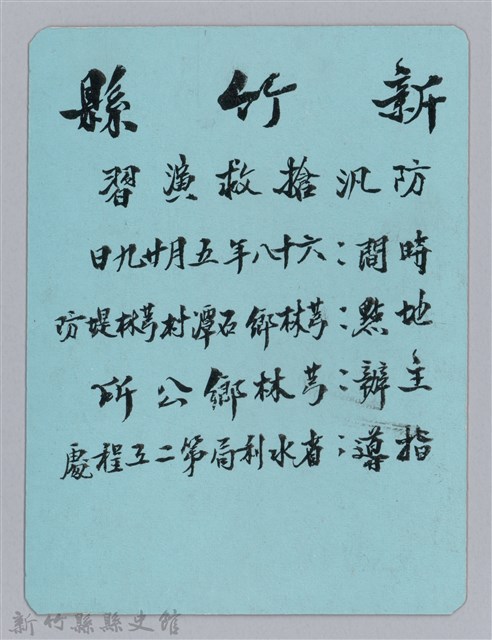 新竹縣
防汎搶救演習
時間：六十八年五月廿九日
地點：芎林鄉石潭村芎林堤防
主辦：芎林鄉公所
指導：省水利局第二工程處
新竹縣縣史館